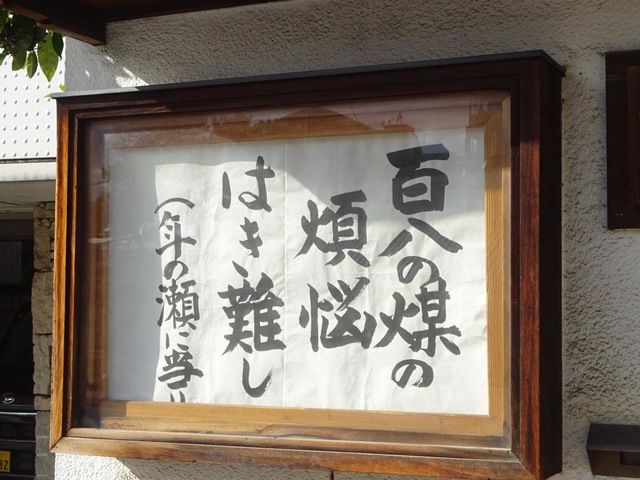 百八の煤の
煩悩
はき難し
(年の瀬に当り
32